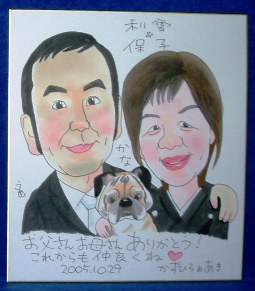 利雪
&
保子
かな
お父さんお母さん ありがとう!
これからも仲良くね
2005.10.29
かずひろ & あき